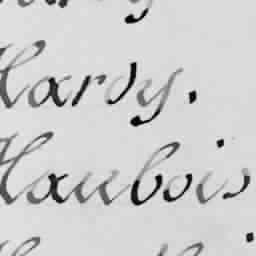 Hardy.
Haubois